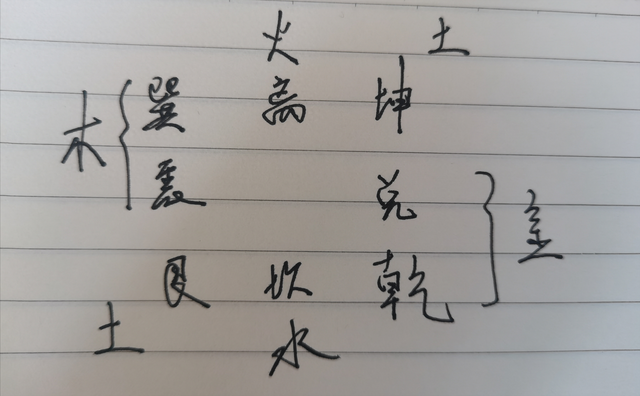 火 土
巽 离 坤
木
震 兑 金
艮 坎 乾
土 水